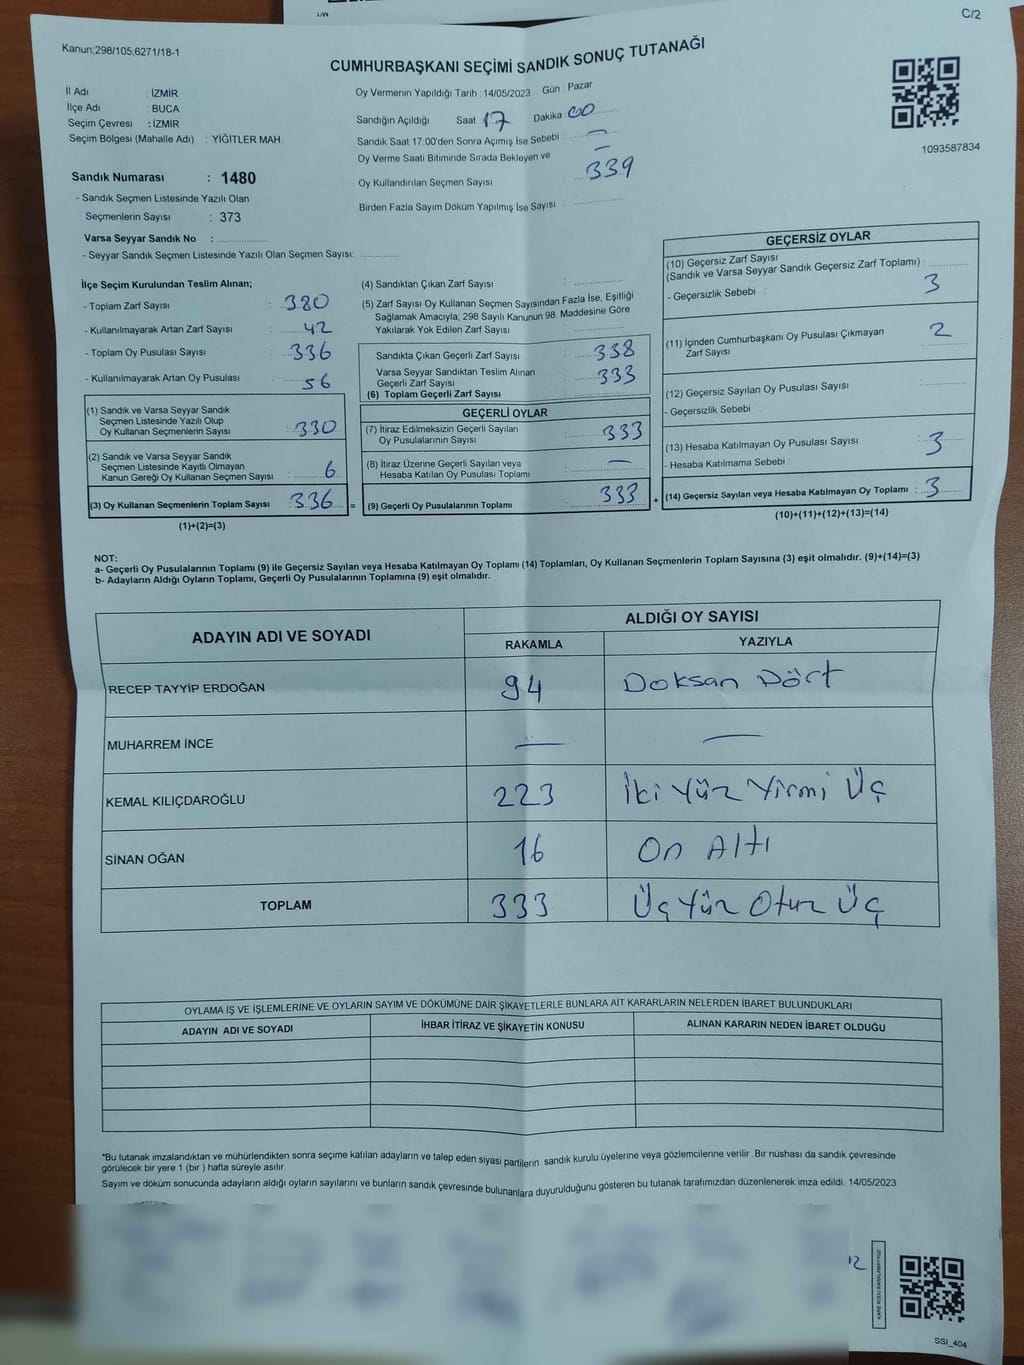 C/2
Kanun;298/105;6271/18-1
CUMHURBAŞKANI SEÇİMİ SANDIK SONUÇ TUTANAĞI
İl Adı : İZMİR
İlçe Adı : BUCA
Seçim Çevresi : İZMİR
Seçim Bölgesi (Mahalle Adı) : YİĞİTLER MAH.
Oy Vermenin Yapıldığı Tarih : 14/05/2023 Gün : Pazar
Sandığın Açıldığı Saat 17 Dakika 00
Sandık Saat 17:00'den Sonra Açımış İse Sebebi : —
Oy Verme Saati Bitiminde Sırada Bekleyen ve —
Oy Kullandırılan Seçmen Sayısı : 339
Birden Fazla Sayım Döküm Yapılmış İse Sayısı :
1093587834
Sandık Numarası : 1480
- Sandık Seçmen Listesinde Yazılı Olan
Seçmenlerin Sayısı : 373
Varsa Seyyar Sandık No :
- Seyyar Sandık Seçmen Listesinde Yazılı Olan Seçmen Sayısı:
İlçe Seçim Kurulundan Teslim Alınan;
- Toplam Zarf Sayısı : 380
- Kullanılmayarak Artan Zarf Sayısı : 42
- Toplam Oy Pusulası Sayısı : 336
- Kullanılmayarak Artan Oy Pusulası : 56
(1) Sandık ve Varsa Seyyar Sandık
Seçmen Listesinde Yazılı Olup
Oy Kullanan Seçmenlerin Sayısı : 330
(2) Sandık ve Varsa Seyyar Sandık
Seçmen Listesinde Kayıtlı Olmayan
Kanun Gereği Oy Kullanan Seçmen Sayısı : 6
(3) Oy Kullanan Seçmenlerin Toplam Sayısı : 336 =
(1)+(2)=(3)
(4) Sandıktan Çıkan Zarf Sayısı :
(5) Zarf Sayısı Oy Kullanan Seçmen Sayısından Fazla İse, Eşitliği
Sağlamak Amacıyla; 298 Sayılı Kanunun 98. Maddesine Göre
Yakılarak Yok Edilen Zarf Sayısı :
Sandıkta Çıkan Geçerli Zarf Sayısı : 338
Varsa Seyyar Sandıktan Teslim Alınan
Geçerli Zarf Sayısı : 333
(6) Toplam Geçerli Zarf Sayısı :
GEÇERLİ OYLAR
(7) İtiraz Edilmeksizin Geçerli Sayılan
Oy Pusulalarının Sayısı : 333
(8) İtiraz Üzerine Geçerli Sayılan veya
Hesaba Katılan Oy Pusulası Toplamı : —
(9) Geçerli Oy Pusulalarının Toplamı : 333 +
GEÇERSİZ OYLAR
(10) Geçersiz Zarf Sayısı
(Sandık ve Varsa Seyyar Sandık Geçersiz Zarf Toplamı) :
- Geçersizlik Sebebi : 3
(11) İçinden Cumhurbaşkanı Oy Pusulası Çıkmayan
Zarf Sayısı : 2
(12) Geçersiz Sayılan Oy Pusulası Sayısı :
- Geçersizlik Sebebi :
(13) Hesaba Katılmayan Oy Pusulası Sayısı : 3
- Hesaba Katılmama Sebebi :
(14) Geçersiz Sayılan veya Hesaba Katılmayan Oy Toplamı : 3
(10)+(11)+(12)+(13)=(14)
NOT:
a- Geçerli Oy Pusulalarının Toplamı (9) ile Geçersiz Sayılan veya Hesaba Katılmayan Oy Toplamı (14) Toplamları, Oy Kullanan Seçmenlerin Toplam Sayısına (3) eşit olmalıdır. (9)+(14)=(3)
b- Adayların Aldığı Oyların Toplamı, Geçerli Oy Pusulalarının Toplamına (9) eşit olmalıdır.
ADAYIN ADI VE SOYADI ALDIĞI OY SAYISI
RAKAMLA YAZIYLA
RECEP TAYYİP ERDOĞAN 94 Doksan Dört
MUHARREM İNCE — —
KEMAL KILIÇDAROĞLU 223 İki Yüz Yirmi Üç
SİNAN OĞAN 16 On Altı
TOPLAM 333 Üç Yüz Otuz Üç
OYLAMA İŞ VE İŞLEMLERİNE VE OYLARIN SAYIM VE DÖKÜMÜNE DAİR ŞİKAYETLERLE BUNLARA AİT KARARLARIN NELERDEN İBARET BULUNDUKLARI
ADAYIN ADI VE SOYADI İHBAR İTİRAZ VE ŞİKAYETİN KONUSU ALINAN KARARIN NEDEN İBARET OLDUĞU
*Bu tutanak imzalandıktan ve mühürlendikten sonra seçime katılan adayların ve talep eden siyasi partilerin sandık kurulu üyelerine veya gözlemcilerine verilir .Bir nüshası da sandık çevresinde
görülecek bir yere 1 (bir ) hafta süreyle asılır.
Sayım ve döküm sonucunda adayların aldığı oyların sayılarını ve bunların sandık çevresinde bulunanlara duyurulduğunu gösteren bu tutanak tarafımızdan düzenlenerek imza edildi. 14/05/2023
KARE KODU KARALAMAYINIZ!
SSİ_404